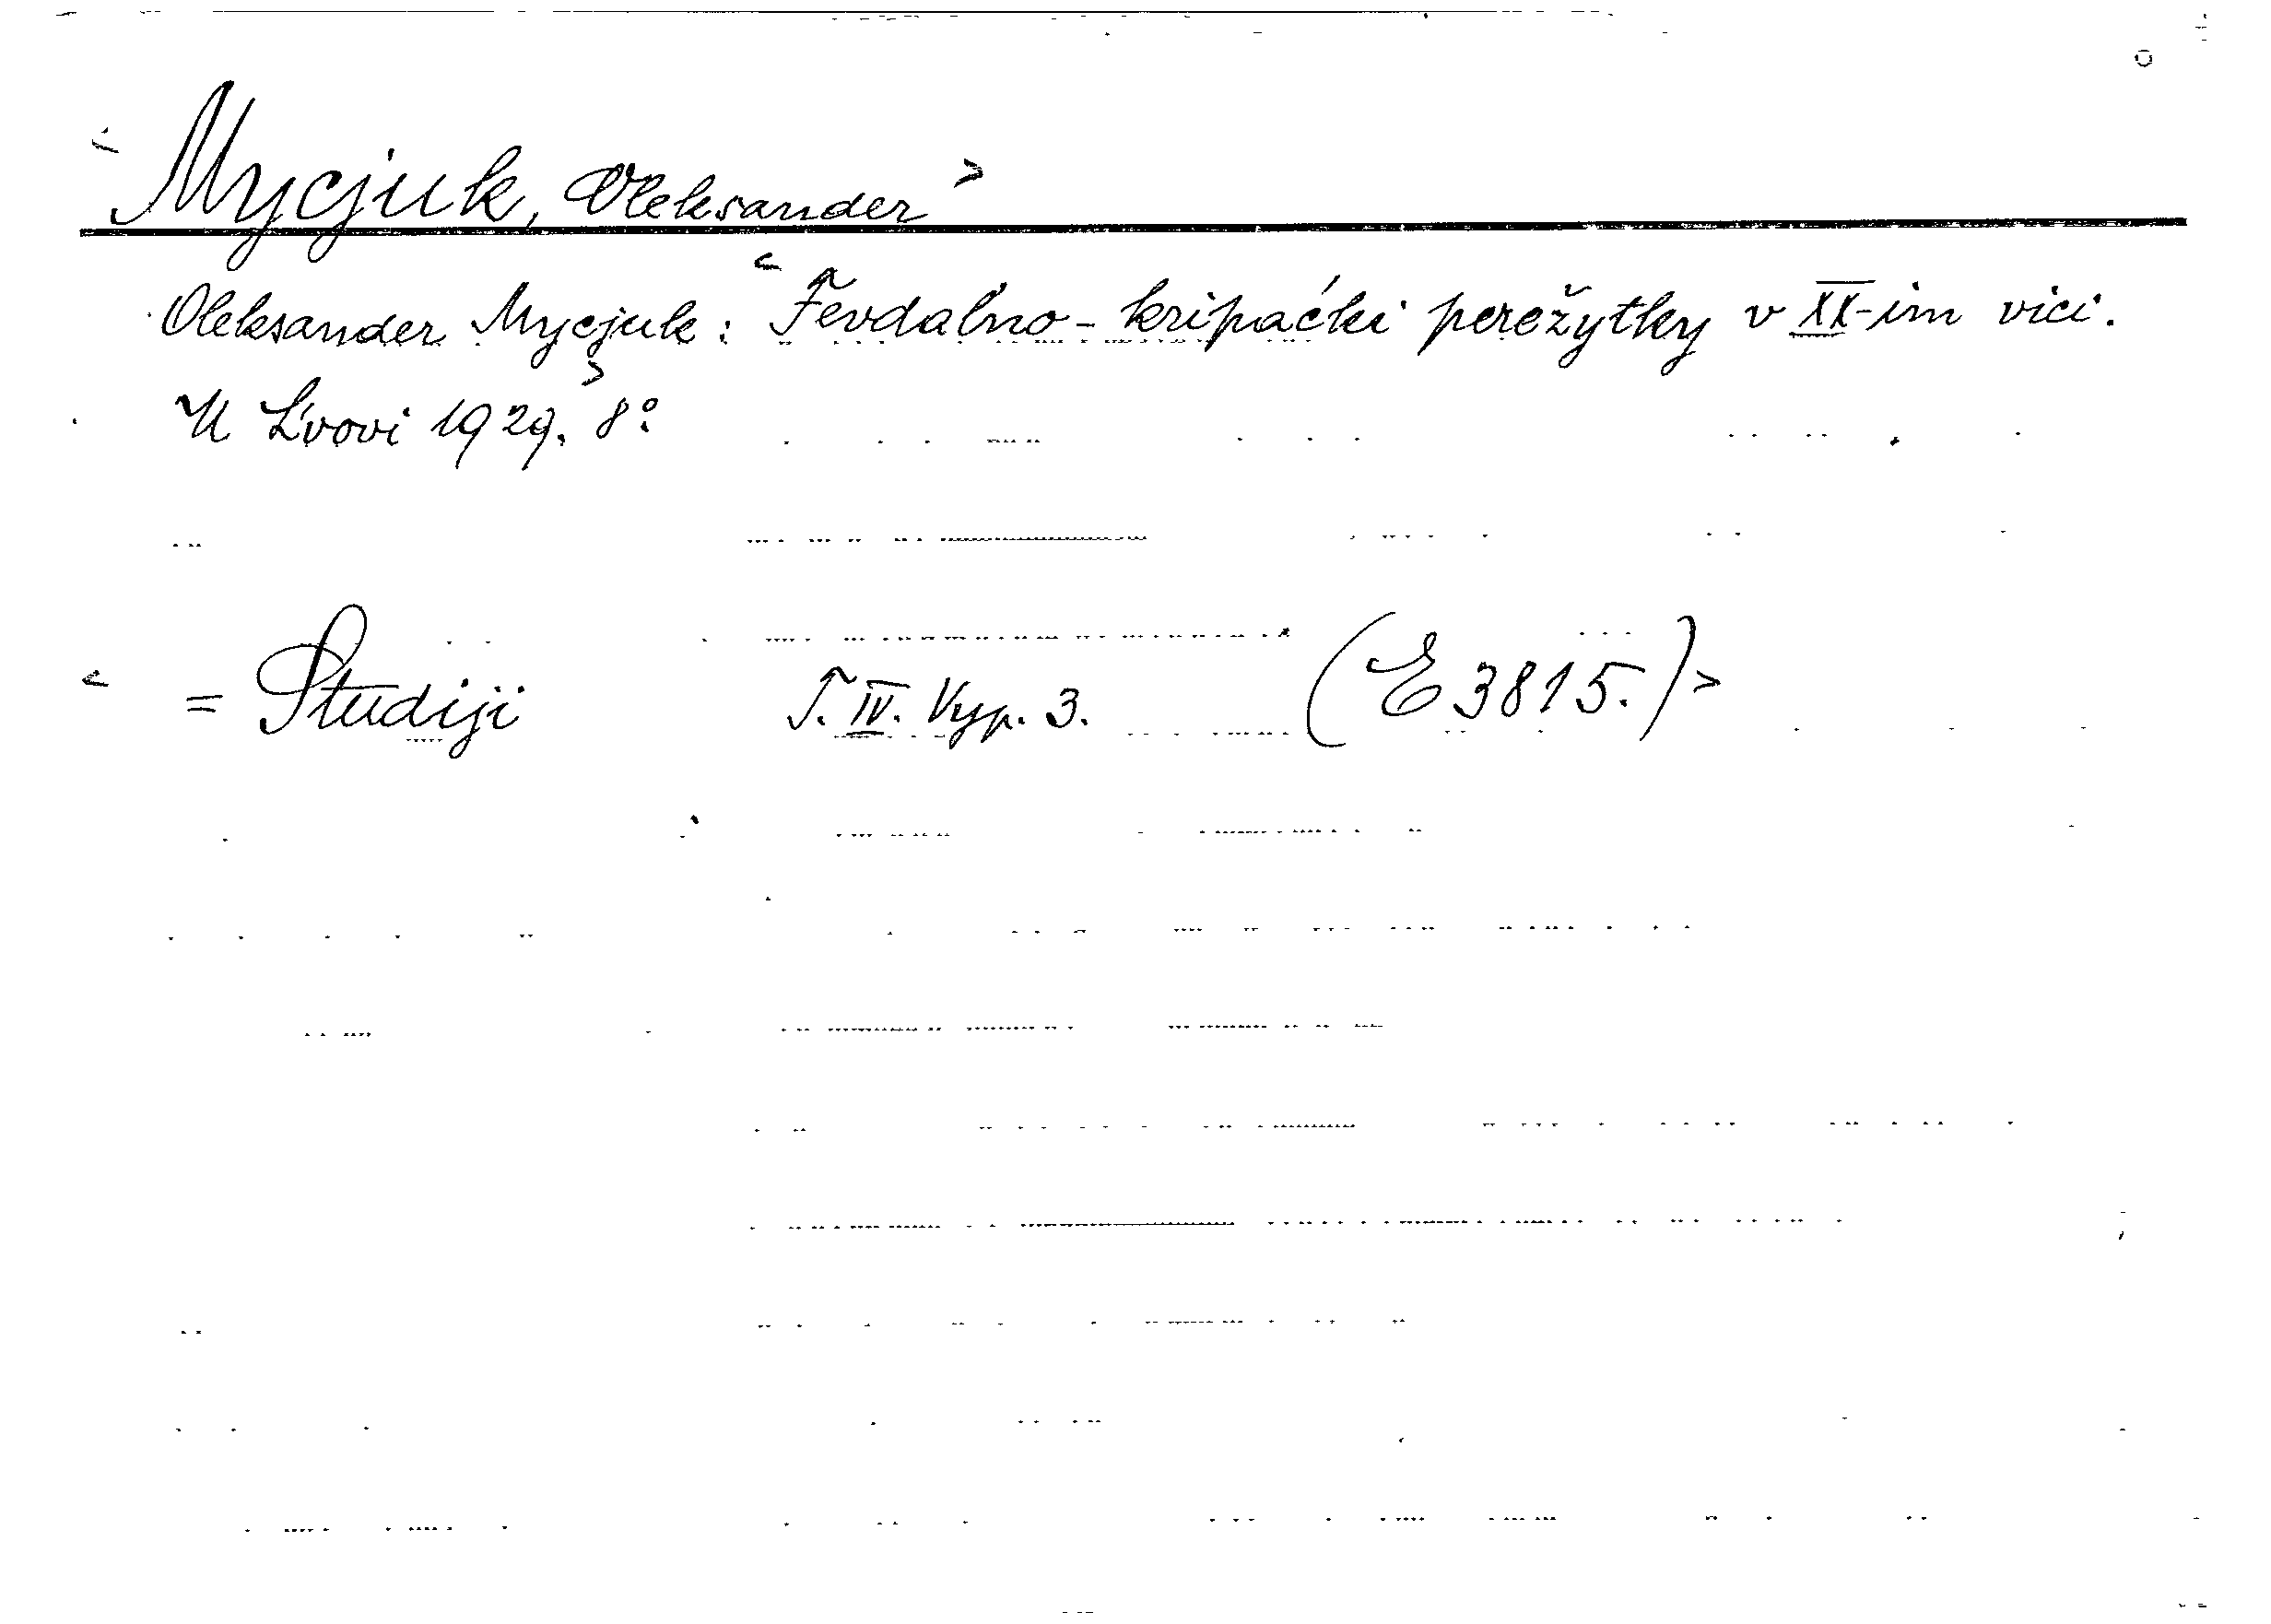 < Mycjuk, Oleksander >
Oleksander Mycjuk: < Fevdaľno-kripaćki perežytky v XX-im vici.
U Ľvovi 1929. > 8°.
< = Studiji T. IV. Vyp. 3. (E 3815.) >